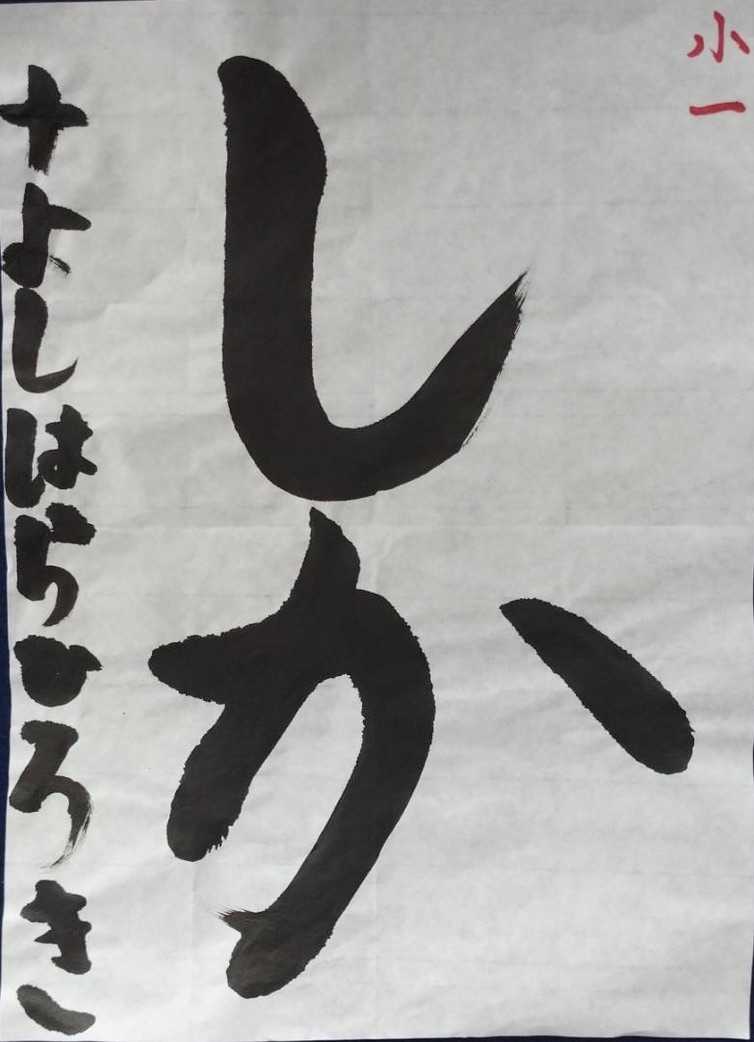 小一
しか
十よしはらひろき